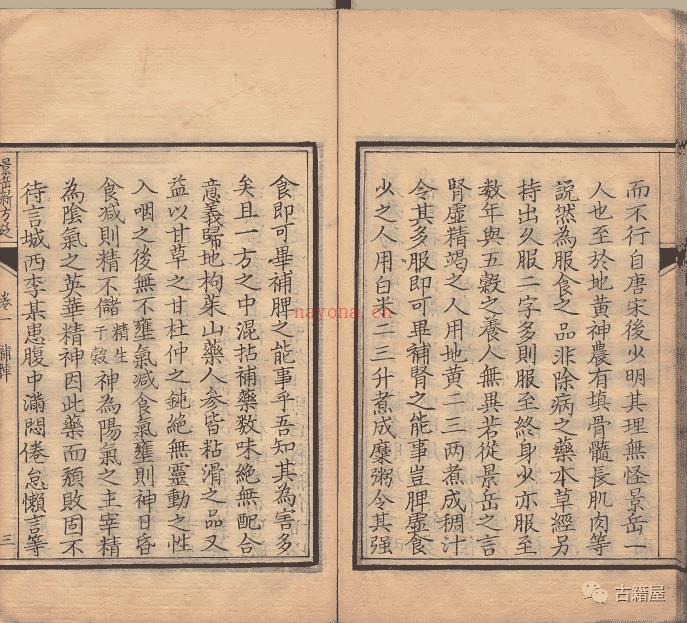 而不行自唐宋後少明其理無怪景岳一
人也至於地黃神農有填骨髓長肌肉等
說然為服食之品非除病之藥本草經另
持出久服二字多則服至終身少亦服至
数年與五穀之養人無異若從景岳之言
腎虛精竭之人用地黃二三两煮成稠汁
令其多服即可畢補腎之能事豈脾虛食
少之人用白米二三升煮成糜粥令其強
食即可畢補脾之能事乎吾知其為害多
矣且一方之中混拈補藥数味絶無配合
意義歸地枸茱山藥人參皆粘滑之品又
益以甘草之甘杜仲之鈍絶無靈動之性
入咽之後無不壅氣减食氣壅則神日昏
食减則精不儲精生于穀神為陽氣之主宰精
為陰氣之英華精神因此藥而頹敗固不
待言城西李某患腹中滿悶倦怠懶言等
景岳新方砭
卷一
補陣
三
nayona.cn
古籍屋